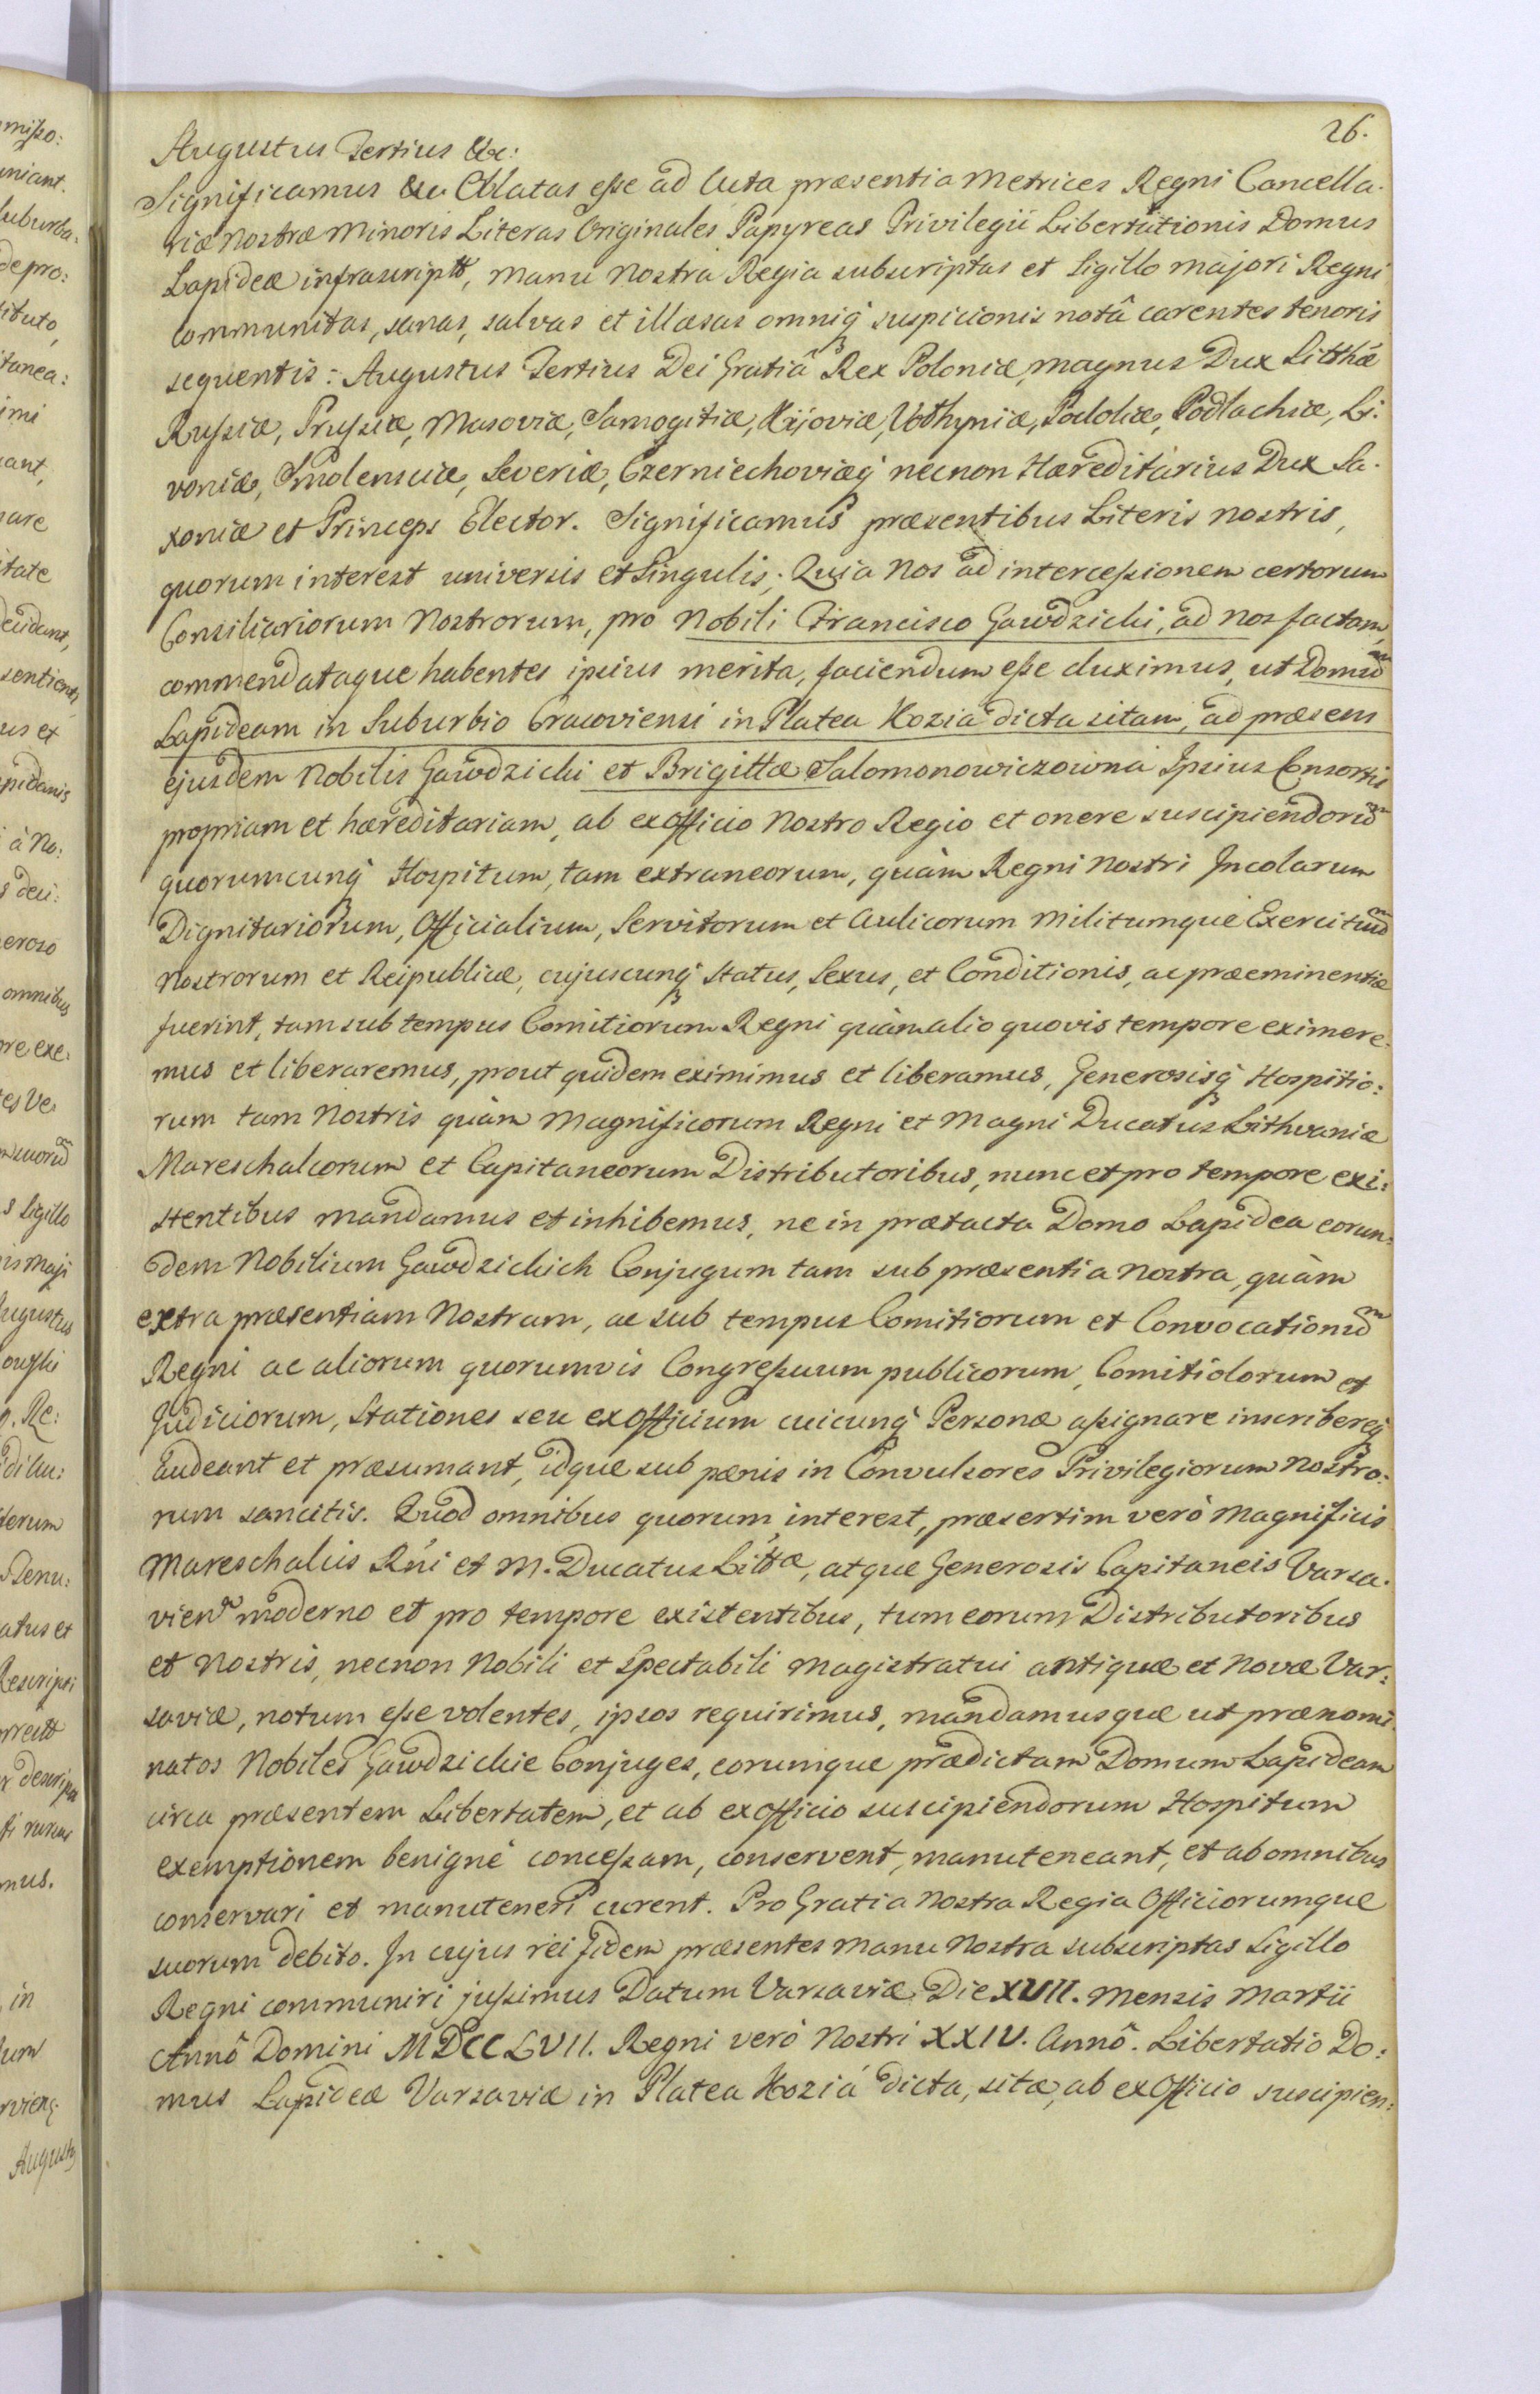 26.
Augustus Tertius &c:
Significamus &c. Oblatas esse ad Acta præsentia Metrices Regni Cancella-
riæ Nostræ Minoris Literas Originales Papyreas Privilegii Libertationis Domus
Lapideæ infrascriptæ, manu Nostra Regia subscriptas et Sigillo majori Regni
communitas, sanas, salvas et illæsas omniq̃ suspicionis notâ carentes tenoris
sequentis: Augustus Tertius Dei Gratiâ Rex Poloniæ, Magnus Dux Litthæ
Russiæ, Prussiæ, Masoviæ, Samogitiæ, Kijoviæ, Volhyniæ, Podoliæ, Podlachiæ, Li-
voniæ, Smolensciæ, Severiæ, Czerniechoviæq̃ necnon Hæreditarius Dux Sa-
xoniæ et Princeps Elector. Significamus præsentibus Literis nostris,
quorum interest universis et Singulis; Quia Nos ad intercessionem certorum
Consiliariorum Nostrorum, pro Nobili Francisco Gawdzicki, ad Nos factam,
commendataque habentes ipsius merita, faciendum esse duximus, ut Domũ
Lapideam in Suburbio Cracoviensi in Platea Kozia dicta sitam, ad præsens
ejusdem Nobilis Gawdzicki et Brigittæ Salomonowiczowna Ipsius Consortis
propriam et hæreditariam, ab exofficio Nostro Regio et onere suscipiendorũ
quorumcunq̃ Hospitum, tam extraneorum, quàm Regni Nostri Incolarum
Dignitariorum, Officialium, Servitorum et Aulicorum Militumque Exercituũ
Nostrorum et Reipublicæ, cujuscunq̃ Status, Sexus, et Conditionis, ac præeminentiæ
fuerint, tam sub tempus Comitiorum Regni quàm alio quovis tempore eximere-
mus et liberaremus, prout quidem eximimus et liberamus, Generosisq̃ Hospitio:
rum tam Nostris quàm Magnificorum Regni et Magni Ducatus Lithvaniæ
Mareschalcorum et Capitaneorum Distributoribus, nunc et pro tempore exi:
stentibus mandamus et inhibemus, ne in prætacta Domo Lapidea eorun-
dem Nobilium Gawdzickich Conjugum tam sub præsentia nostra, quàm
extra præsentiam Nostram, ac sub tempus Comitiorum et Convocationũ
Regni ac aliorum quorumvis Congressuum publicorum, Comitiolorum et
Judiciorum, Stationes seu exOfficium cuicunq̃ Personæ assignare inscribereq̃
audeant et præsumant, idque sub pœnis in Convulsores Privilegiorum Nostro:
rum sancitis. Quod omnibus quorum interest, præsertim verò Magnificis
Mareschalcis Rńi et M. Ducatus Littæ, atque Generosis Capitaneis Varsa-
vienŝ moderno et pro tempore existentibus, tum eorum Distributoribus
et Nostris, necnon Nobili et Spectabili Magistratui antiquæ et Novæ Var:
saviæ, notum esse volentes, ipsos requirimus, mandamusque ut prænomi-
natos Nobiles Gawdzickie Conjuges, eorumque prædictam Domum Lapideam
circa præsentem Libertatem, et ab exofficio suscipiendorum Hospitum
exemptionem benignè concessam, conservent, manuteneant, et ab omnibus
conservari et manuteneri curent. Pro Gratia Nostra Regia Officiorumque
suorum debito. In cujus rei fidem præsentes Manu Nostra subscriptas Sigillo
Regni communiri jussimus Datum Varsaviæ Die XVII. Mensis Martii
Annô Domini MDCCLVII. Regni verò Nostri XXIV. Annô. Libertatio Do:
mus Lapideæ Varsaviæ in Platea Kozia dicta, sitæ, ab exOfficio suscipien: